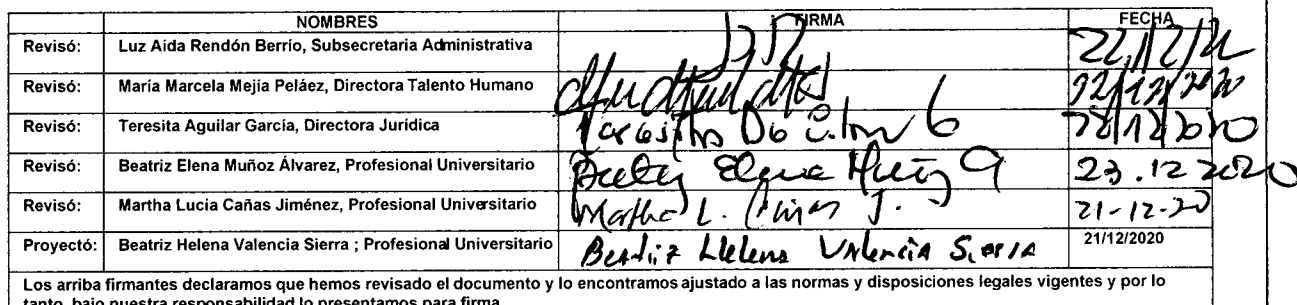 NOMBRES FIRMA FECHA
Revisó: Luz Aida Rendón Berrío, Subsecretaria Administrativa
Revisó: María Marcela Mejía Peláez, Directora Talento Humano 22/12/2020
Revisó: Teresita Aguilar García, Directora Jurídica 28/12/2020
Revisó: Beatriz Elena Muñoz Álvarez, Profesional Universitario Beatriz Elena Muñoz A 23.12 2020
Revisó: Martha Lucía Cañas Jiménez, Profesional Universitario Martha L. Cañas J. 21-12-20
Proyectó: Beatriz Helena Valencia Sierra ; Profesional Universitario Beatriz Helena Valencia Sierra 21/12/2020
Los arriba firmantes declaramos que hemos revisado el documento y lo encontramos ajustado a las normas y disposiciones legales vigentes y por lo
tanto, bajo nuestra responsabilidad lo presentamos para firma